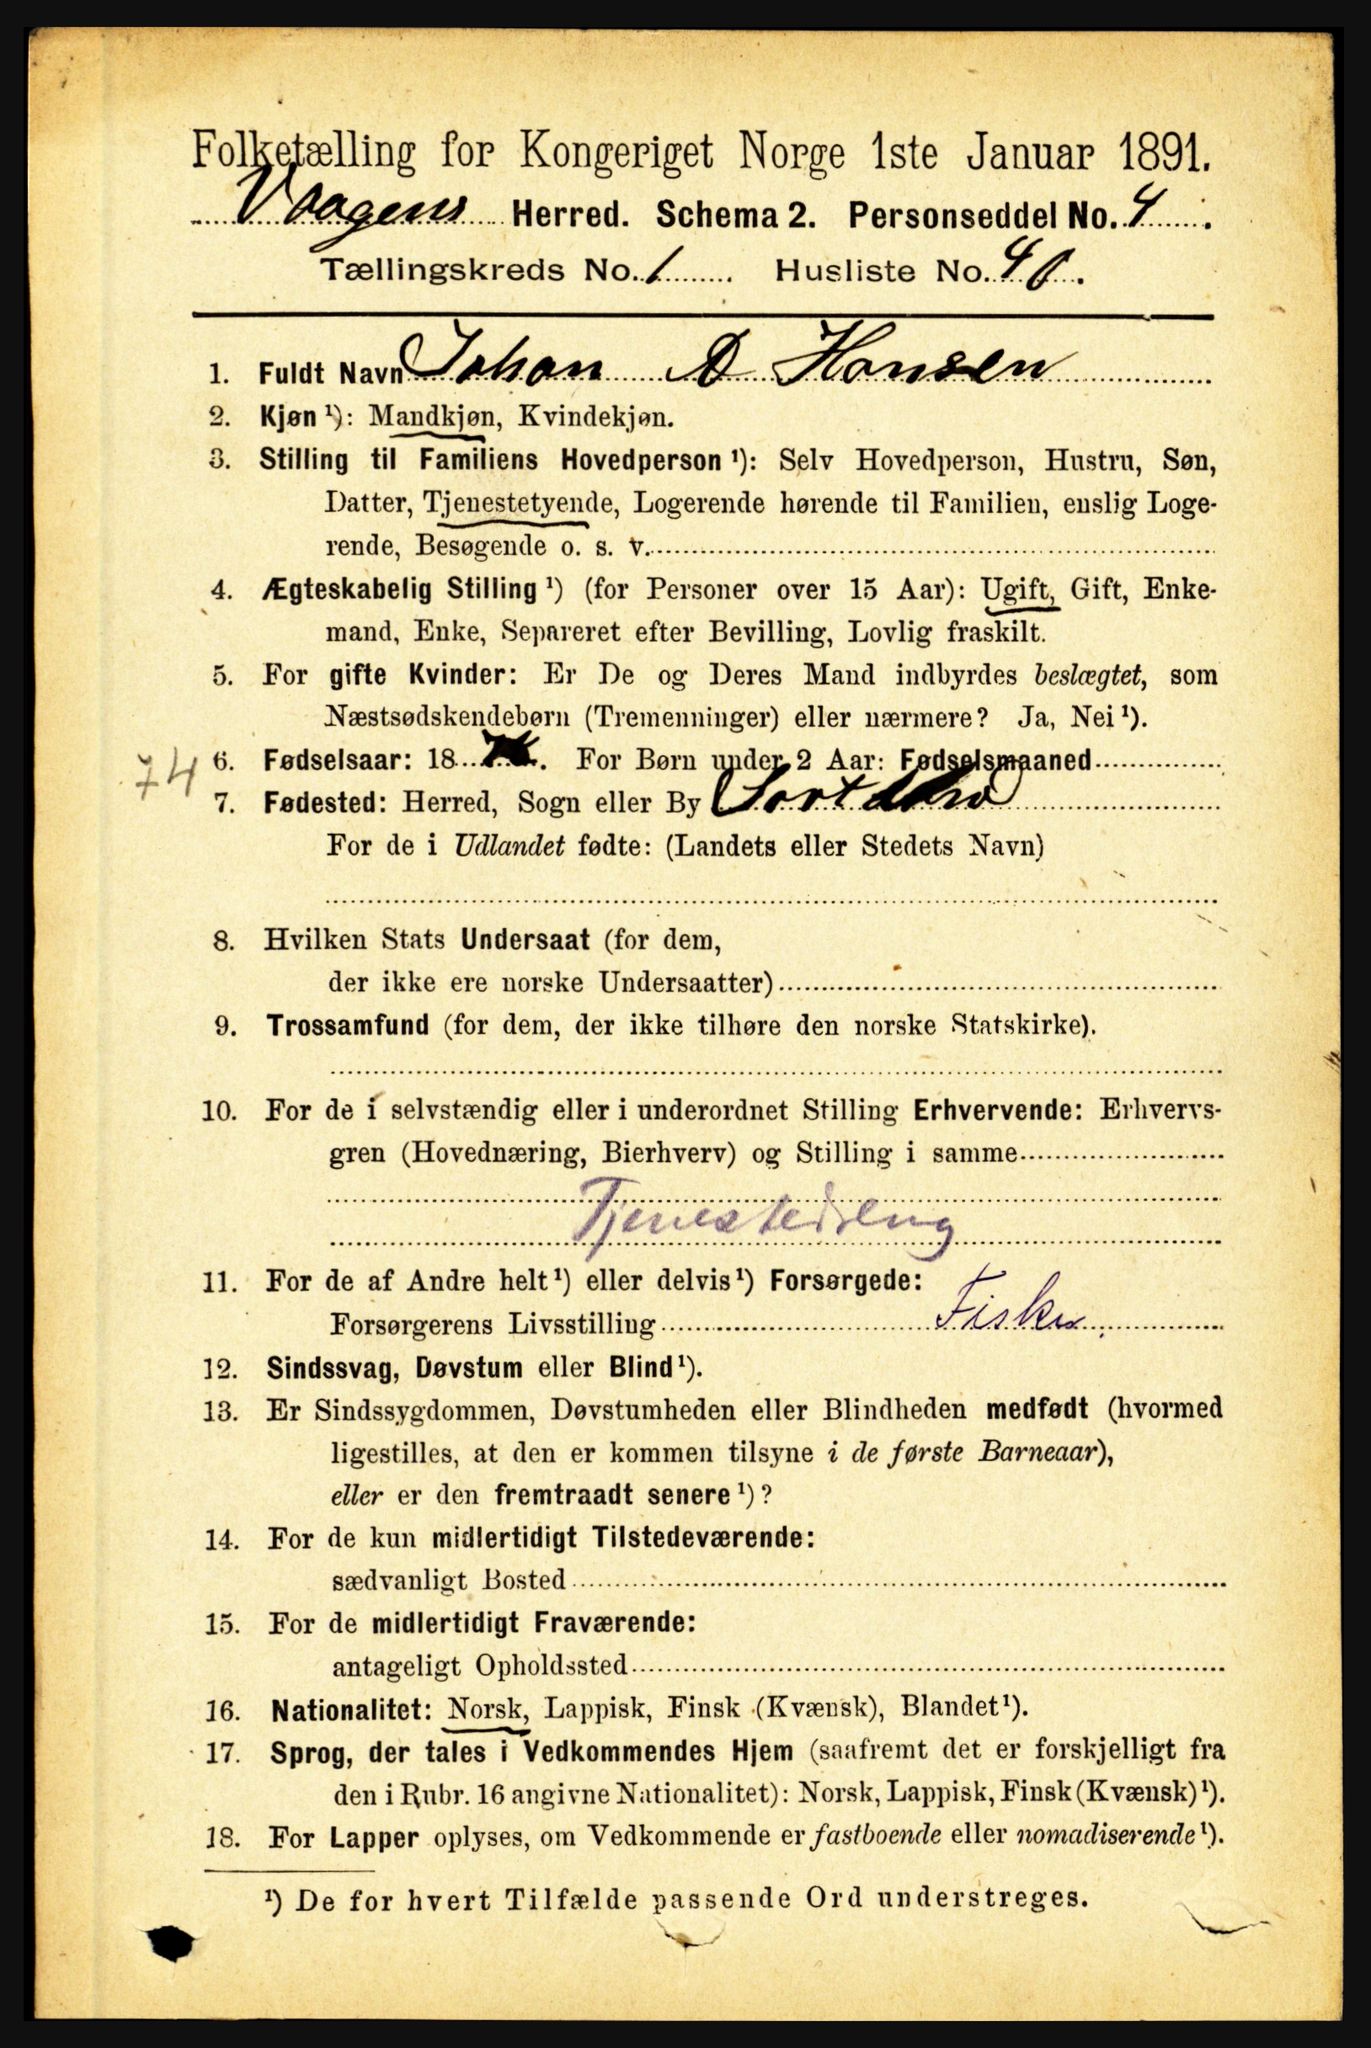 Folketælling for Kongeriget Norge 1ste Januar 1891.
Vaagens Herred. Schema 2. Personseddel No. 4.
Tællingskreds No. 1. Husliste No. 40.
1. Fuldt Navn Johan A Hansen
2. Kjøn ¹): Mandkjøn, Kvindekjøn.
3. Stilling til Familiens Hovedperson ¹): Selv Hovedperson, Hustru, Søn,
Datter, Tjenestetyende, Logerende hørende til Familien, enslig Loge-
rende, Besøgende o. s. v.
4. Ægteskabelig Stilling ¹) (for Personer over 15 Aar): Ugift, Gift, Enke-
mand, Enke, Separeret efter Bevilling, Lovlig fraskilt.
5. For gifte Kvinder: Er De og Deres Mand indbyrdes beslægtet, som
Næstsødskendebørn (Tremenninger) eller nærmere? Ja, Nei ¹).
74 6. Fødselsaar: 1874. For Børn under 2 Aar: Fødselsmaaned
7. Fødested: Herred, Sogn eller By Sortland
For de i Udlandet fødte: (Landets eller Stedets Navn)
8. Hvilken Stats Undersaat (for dem,
der ikke ere norske Undersaatter)
9. Trossamfund (for dem, der ikke tilhøre den norske Statskirke).
10. For de i selvstændig eller i underordnet Stilling Erhvervende: Erhvervs-
gren (Hovednæring, Bierhverv) og Stilling i samme
Tjenestedreng
11. For de af Andre helt ¹) eller delvis ¹) Forsørgede:
Forsørgerens Livsstilling Fisker.
12. Sindssvag, Døvstum eller Blind ¹).
13. Er Sindssygdommen, Døvstumheden eller Blindheden medfødt (hvormed
ligestilles, at den er kommen tilsyne i de første Barneaar),
eller er den fremtraadt senere ¹)?
14. For de kun midlertidigt Tilstedeværende:
sædvanligt Bosted
15. For de midlertidigt Fraværende:
antageligt Opholdssted
16. Nationalitet: Norsk, Lappisk, Finsk (Kvænsk), Blandet ¹).
17. Sprog, der tales i Vedkommendes Hjem (saafremt det er forskjelligt fra
den i Rubr. 16 angivne Nationalitet): Norsk, Lappisk, Finsk (Kvænsk) ¹).
18. For Lapper oplyses, om Vedkommende er fastboende eller nomadiserende ¹).
¹) De for hvert Tilfælde passende Ord understreges.